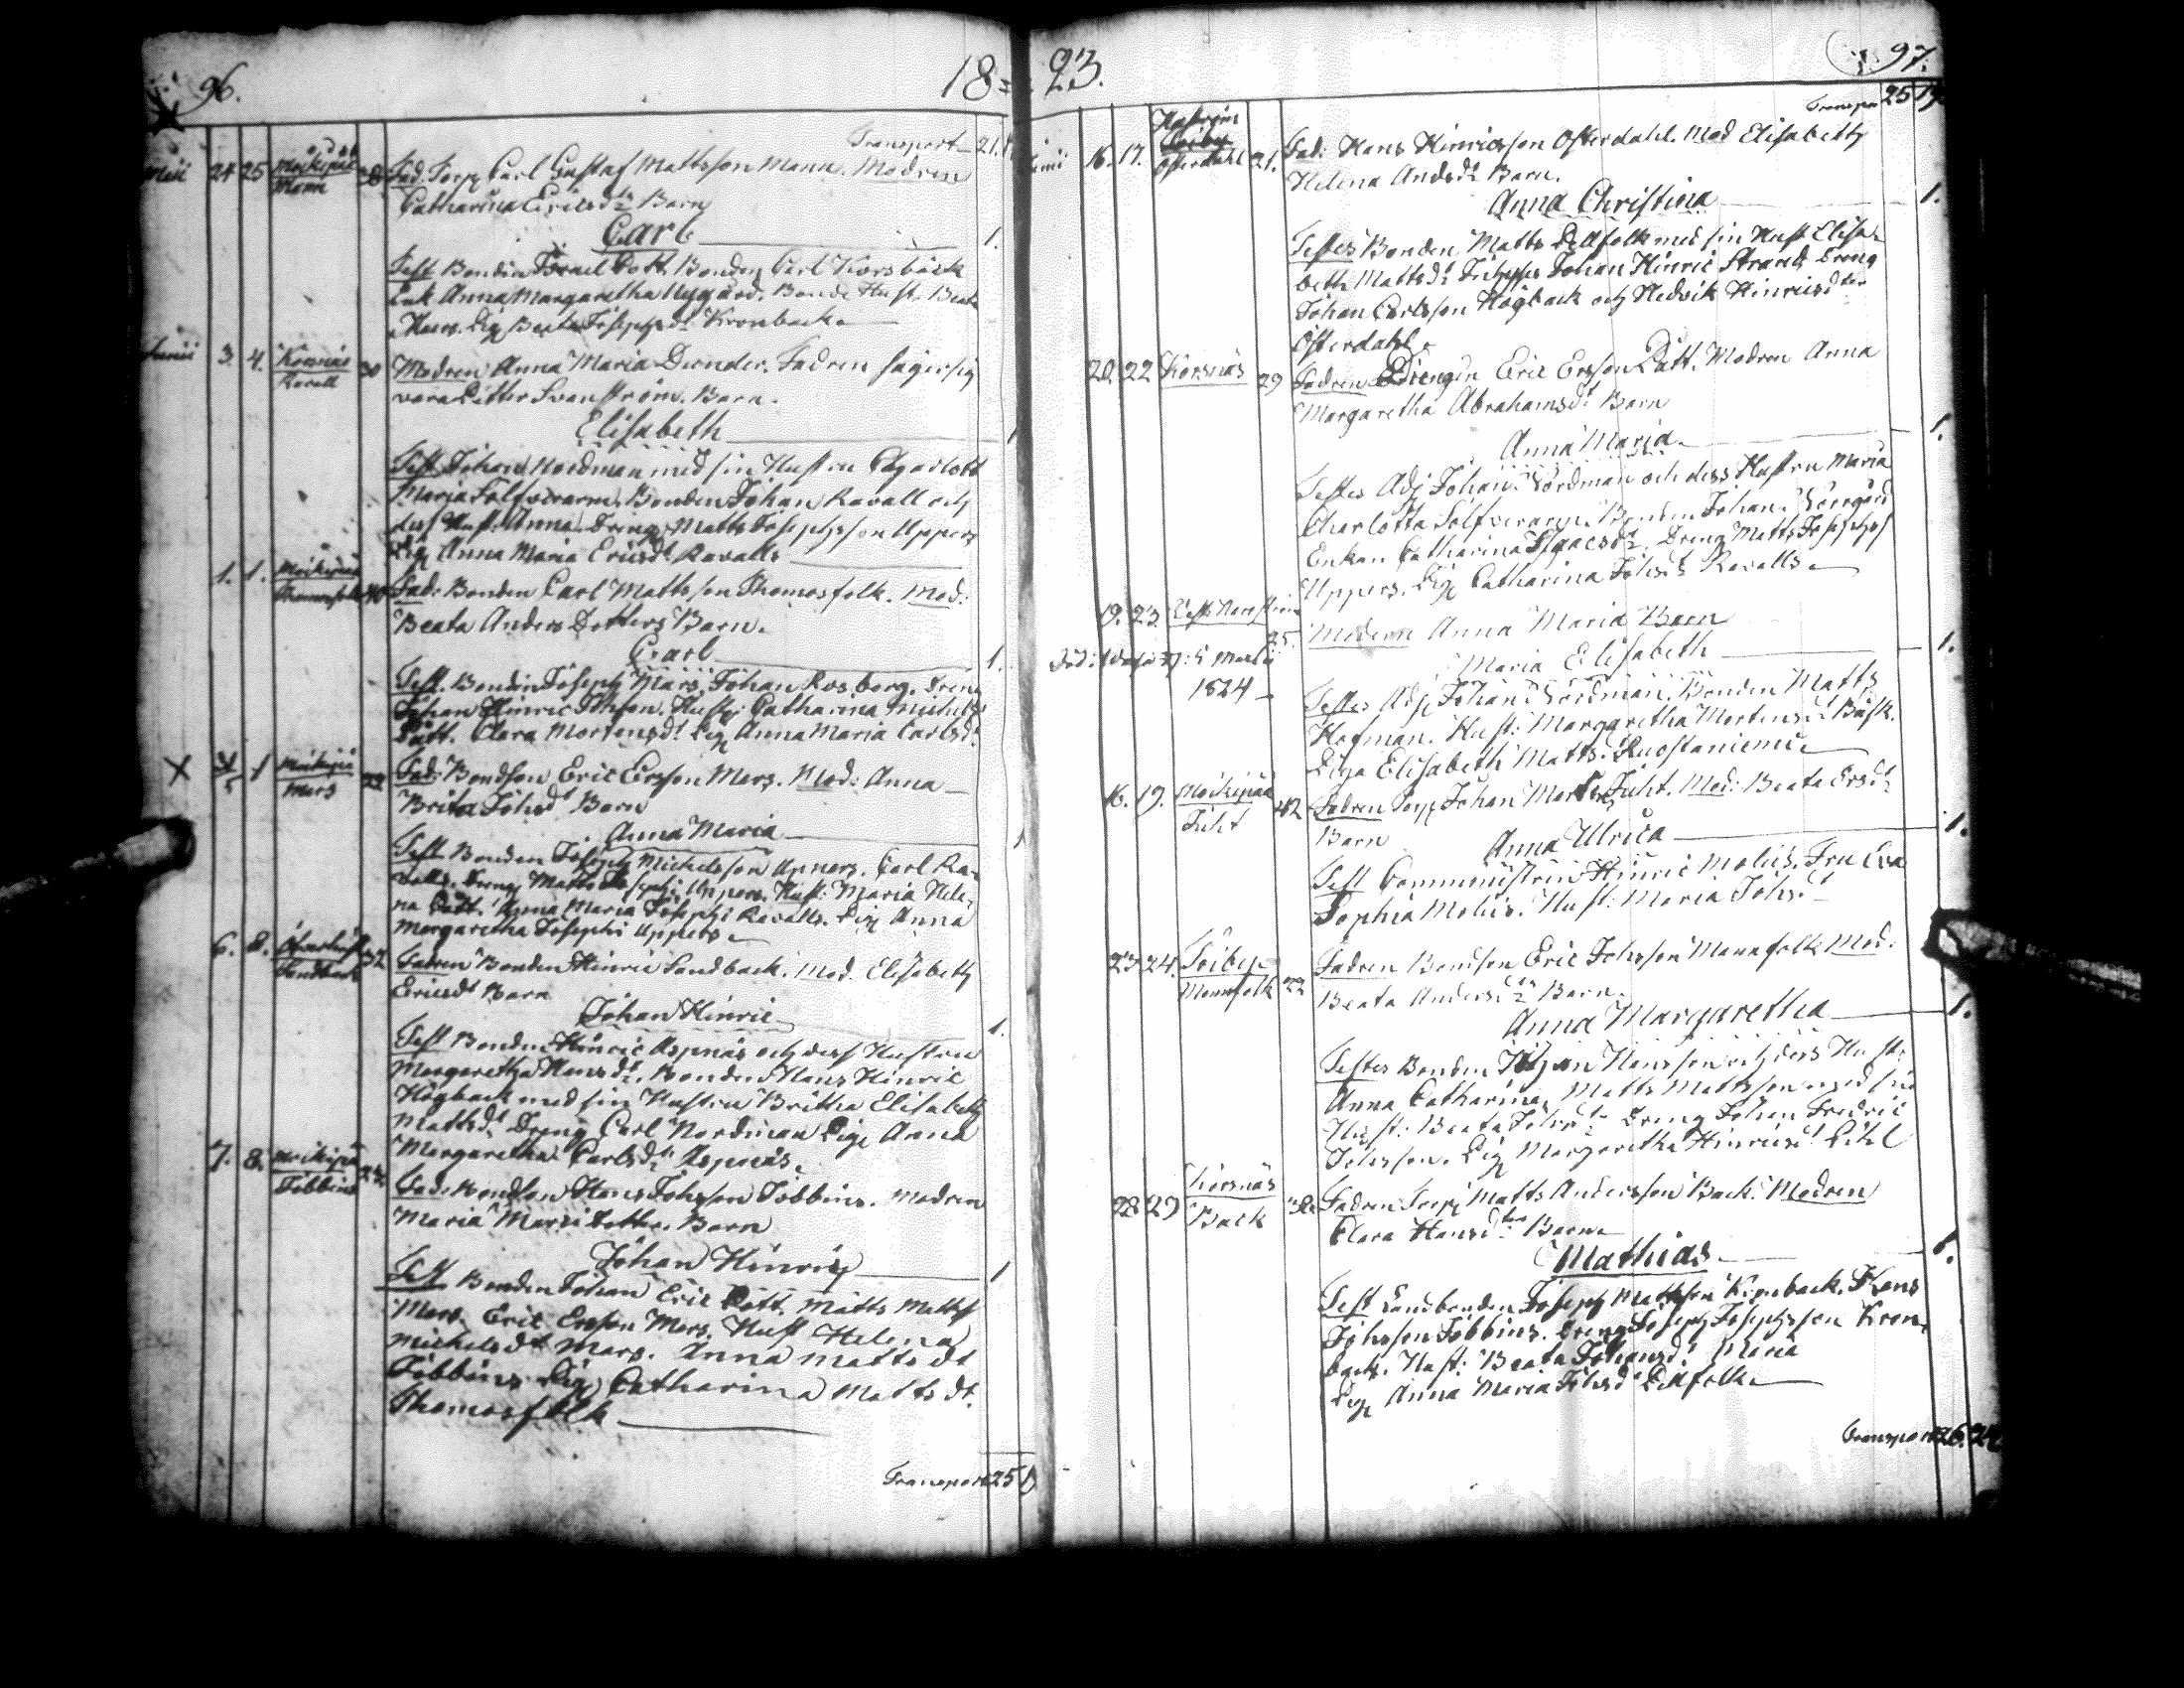 96.
18 =
Transport 21.
Maii 24 25 Moikipää Mann 28 Fad. Torp. Carl Gustaf Mattsson Mann. Modren
Catharina Ericsdr Barn
Carl 1.
Test. Bonden Israel Dött. Bonden Carl Korsbäck
Enk. Anna Margaretha Nygård. Bonde Hust. Beata
Mars. Pig. Beata Josephsdr Kronback.
Junii 3. 4. Korsnäs Ravall 30 Modren Anna Maria Dernder. Fadren säger sig
vara Petter Svanström. Barn.
Elisabeth 1
Test. Johan Nordman med sin Hustru Charlott
Maria Solfverarm. Bonden Johan Ravall och
dess Hust. Anna. Dreng Matts Josephsson Uppers
Pig. Anna Maria Ericsdt Ravalls
1. 1. Moikipää Thomasfolk 40 Fad: Bonden Carl Mattsson Thomasfolk. Mod:
Beata Anders Dotters Barn.
Carl 1.
Test. Bonden Joseph Mars, Johan Rosberg. Dreng
Johan Hinric. Hust. Catharina Michelsd.
Dött. Clara Mortensdt. Pig. Anna Maria Carlsdt.
X 31/5 1 Moikipää Mars 22 Fad: Bondson Eric Ersson Mars. Mod: Anna
Brita Johsdt Barn
Anna Maria 1
Test. Bonden Joseph Michelsson Uppers. Carl Ra-
valls. Dreng Matts Josephs: Uppers. Hust: Maria Hele-
na Dött. Anna Maria Josephs: Ravalls. Pig. Anna
Margaretha Josephs: Uppers.
6. 8. Sandback 32 Fadren Bonden Hinric Sandback. Mod. Elisabeth
Ericsdt Barn
Johan Hinric 1.
Test. Bonden Hinric Aspnäs och dess Hustru
Margaretha Hansdt. Bonden Hans Hinric
Högback med sin Hustru Britha Elisabeth
Mattsdt. Dreng Carl Nordman Pig. Anna
Margaretha Carlsdt. Aspnäs.
7. 8. Moikipää Tobbins Fad. Bondson Hans Johsson Tobbins. Modren
Maria Mars: Dotter. Barn
Johan Hinric 1
Test. Bonden Johan Eric Dött. Matts Matts:
Mars. Eric Ersson Mars. Hust Helena
Michelsdt Mars. Anna Mattsdt
Tobbins Pig. Catharina Mattsdt.
Thomasfolk
Transport 25
23.
97.
Transp 25 19
Junii 16. 17. Österdahl 21. Fad: Hans Hinricsson Österdahl. Mod Elisabeth
Helena Andsdr Barn.
Anna Christina 1.
Testes Bonden Matts Dellfolk med sin Hust Elisa-
beth Mattsdr. Johan Hinric Strand Dreng
Johan Carlsson Högback och Hedvik Hinricsdter
Österdahl.
20. 22 Korsnäs 29 Fadren Drengen Eric Ersson Dätt. Modren Anna
Margaretha Abrahamsdt Barn
Anna Maria 1.
Testes Adj Johan Nordman och dess Hustru Maria
Charlotta Solfverarm. Bonden Johan Norrgård
Enkan Catharina Isaacsdr. Dreng Matts Josephs:
Uppers. Pig Catharina Johsdt Ravalls.
19. 23. 25 Modern Anna Maria Barn
Maria Elisabeth 1.
5 Martii
1824
Testes Adj Johan Nordman. Bonden Matts
Hofman. Hust: Margaretha Mortensdt Bäsk.
Piga Elisabeth Matts: Ruostaniemi
16. 19. Moikipää Juht 42 Fadren Torp Johan Martss Juht. Mod: Beata Ersdt
Barn Anna Ulrica 1.
Test Comministrin Hinric Molús. Fru Eva
Sophia Molús. Hust: Maria Johsdt
23. 24. Toiby Mannfolk 22 Fadren Bondson Eric Johsson Mannfolk Mod:
Beata Andersdtr Barn.
Anna Margaretha 1.
Testes Bonden Johan Hansson och dess Hust:
Anna Catharina, Matts Mattsson med sin
Hust: Beata Johsdt Dreng Johan Fredric
Johsson. Pig Margaretha Hinricsdt
28 29 Korsnäs Back 38 Fadren Torp Matts Andersson Back. Modren
Clara Hansdter Barn
Mathias 1.
Test Landbonden Joseph Mattsson Kronback. Hans
Johsson Tobbins. Dreng Joseph Josephsson Kron-
back. Hust: Beata Johansdt. Maria
Pig Anna Maria Johsdt Dellfolk
Transport 26. 24